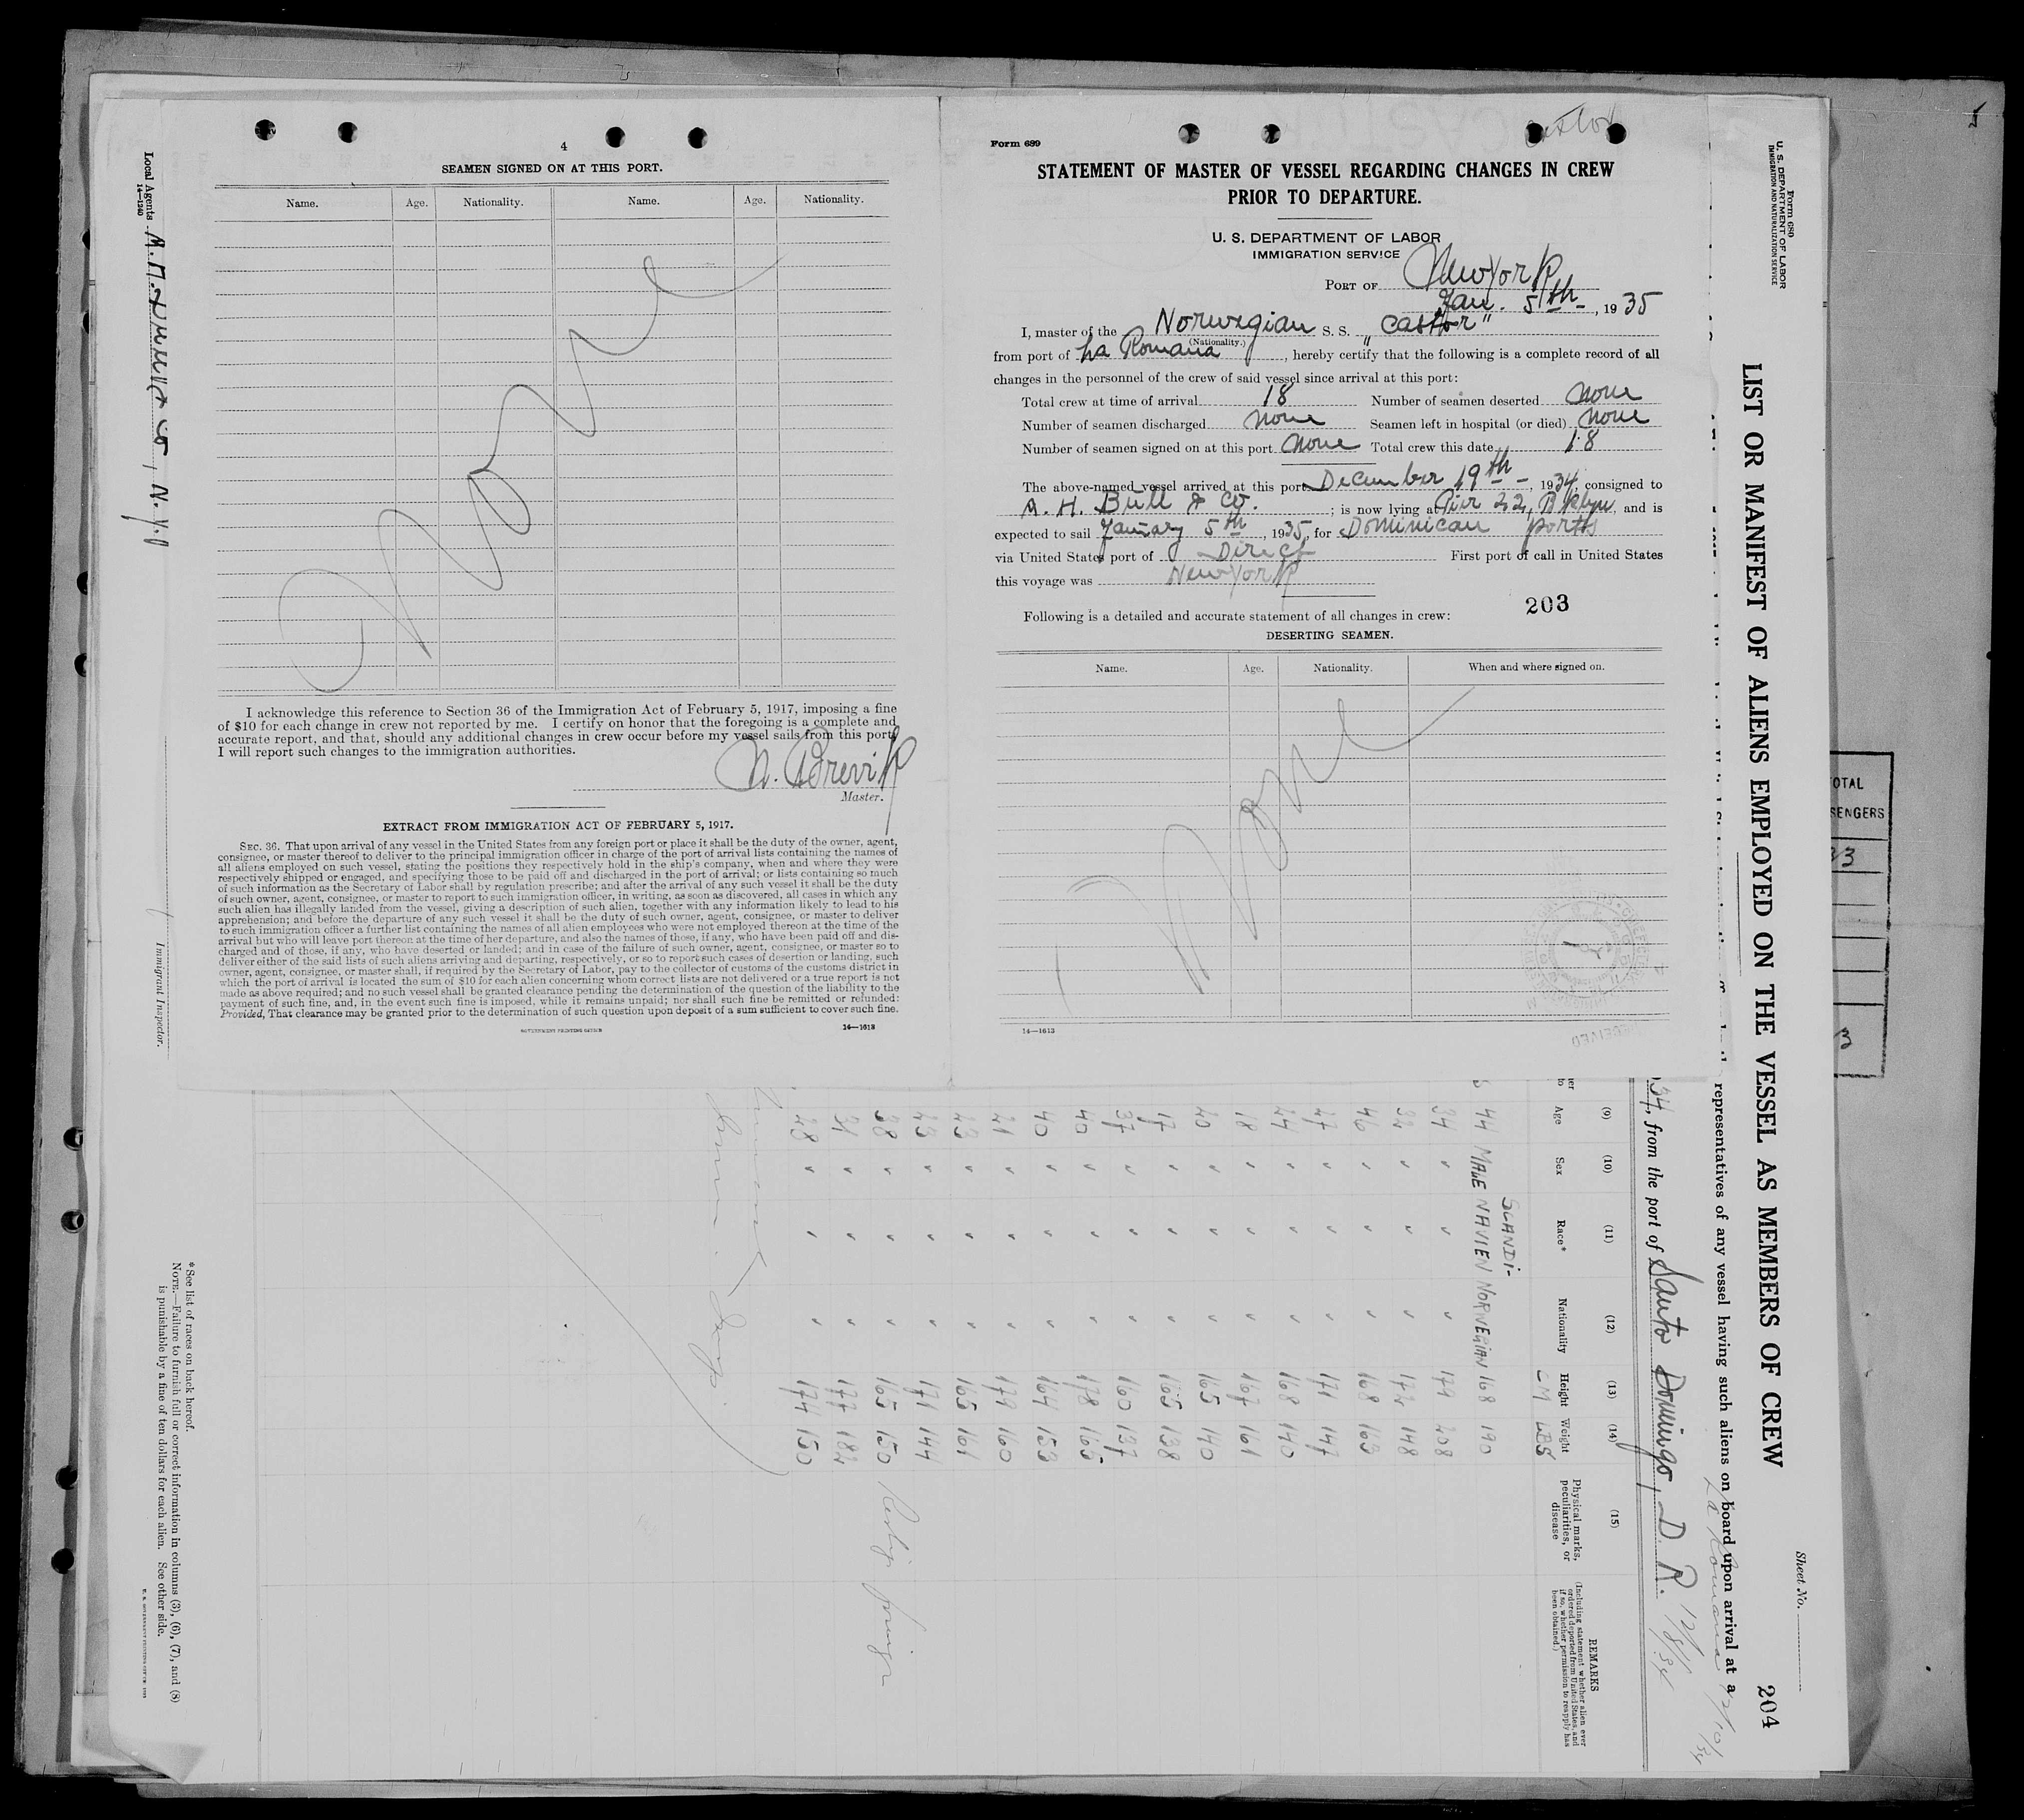 4
SEAMEN SIGNED ON AT THIS PORT.
Name. Age. Nationality. Name. Age. Nationality.
None
I acknowledge this reference to Section 36 of the Immigration Act of February 5, 1917, imposing a fine
of $10 for each change in crew not reported by me. I certify on honor that the foregoing is a complete and
accurate report, and that, should any additional changes in crew occur before my vessel sails from this port,
I will report such changes to the immigration authorities.
N. Brevik
Master.
EXTRACT FROM IMMIGRATION ACT OF FEBRUARY 5, 1917.
SEC. 36. That upon arrival of any vessel in the United States from any foreign port or place it shall be the duty of the owner, agent,
consignee, or master thereof to deliver to the principal immigration officer in charge of the port of arrival lists containing the names of
all aliens employed on such vessel, stating the positions they respectively hold in the ship's company, when and where they were
respectively shipped or engaged, and specifying those to be paid off and discharged in the port of arrival; or lists containing so much
of such information as the Secretary of Labor shall by regulation prescribe; and after the arrival of any such vessel it shall be the duty
of such owner, agent, consignee, or master to report to such immigration officer, in writing, as soon as discovered, all cases in which any
such alien has illegally landed from the vessel, giving a description of such alien, together with any information likely to lead to his
apprehension; and before the departure of any such vessel it shall be the duty of such owner, agent, consignee, or master to deliver
to such immigration officer a further list containing the names of all alien employees who were not employed thereon at the time of the
arrival but who will leave port thereon at the time of her departure, and also the names of those, if any, who have been paid off and dis-
charged and of those, if any, who have deserted or landed; and in case of the failure of such owner, agent, consignee, or master so to
deliver either of the said lists of such aliens arriving and departing, respectively, or so to report such cases of desertion or landing, such
owner, agent, consignee, or master shall, if required by the Secretary of Labor, pay to the collector of customs of the customs district in
which the port of arrival is located the sum of $10 for each alien concerning whom correct lists are not delivered or a true report is not
made as above required; and no such vessel shall be granted clearance pending the determination of the question of the liability to the
payment of such fine, and, in the event such fine is imposed, while it remains unpaid; nor shall such fine be remitted or refunded:
Provided, That clearance may be granted prior to the determination of such question upon deposit of a sum sufficient to cover such fine.
GOVERNMENT PRINTING OFFICE 14—1613
Form 689
STATEMENT OF MASTER OF VESSEL REGARDING CHANGES IN CREW
PRIOR TO DEPARTURE.
U. S. DEPARTMENT OF LABOR
IMMIGRATION SERVICE
PORT OF New York
Jan. 5th, 1935
I, master of the Norwegian S. S. "Castor"
(Nationality.)
from port of La Romana, hereby certify that the following is a complete record of all
changes in the personnel of the crew of said vessel since arrival at this port:
Total crew at time of arrival 18 Number of seamen deserted none
Number of seamen discharged none Seamen left in hospital (or died) none
Number of seamen signed on at this port none Total crew this date 18
The above-named vessel arrived at this port December 19th, 1934, consigned to
A. H. Bull & Co.; is now lying at Pier 22, Bklyn, and is
expected to sail January 5th, 1935, for Dominican ports
via United States port of Direct First port of call in United States
this voyage was New York
203
Following is a detailed and accurate statement of all changes in crew:
DESERTING SEAMEN.
Name. Age. Nationality. When and where signed on.
None
14—1613
RECEIVED
Form 680
U. S. DEPARTMENT OF LABOR
IMMIGRATION AND NATURALIZATION SERVICE
LIST OR MANIFEST OF ALIENS EMPLOYED ON THE VESSEL AS MEMBERS OF CREW
Sheet No.
204
representatives of any vessel having such aliens on board upon arrival at a
La Romana 12/10/34
34, from the port of Santo Domingo, D. R. 12/8/34
(9) (10) (11) (12) (13) (14) (15)
Age Sex Race* Nationality Height Weight Physical marks, peculiarities, or disease
REMARKS
(Including statement whether alien ever
ordered deported from United States, and
if so, whether permission to reapply has
been obtained.)
CM LBS
SCANDI-
44 MALE NAVIEN NORWEGIAN 168 190
34 " " " 179 208
32 " " " 172 148
46 " " " 168 163
27 " " " 171 147
24 " " " 168 140
18 " " " 167 161
20 " " " 165 140
17 " " " 165 138
37 " " " 160 137
40 " " " 178 165
40 " " " 164 153
21 " " " 179 160
23 " " " 165 161
23 " " " 171 144
38 " " " 165 150
31 " " " 177 182
28 " " " 174 150
* See list of races on back hereof.
NOTE.—Failure to furnish full or correct information in columns (3), (6), (7), and (8)
is punishable by a fine of ten dollars for each alien. See other side.
Local Agents
14—1240
N. Y.
Immigrant Inspector.
OTAL
SENGERS